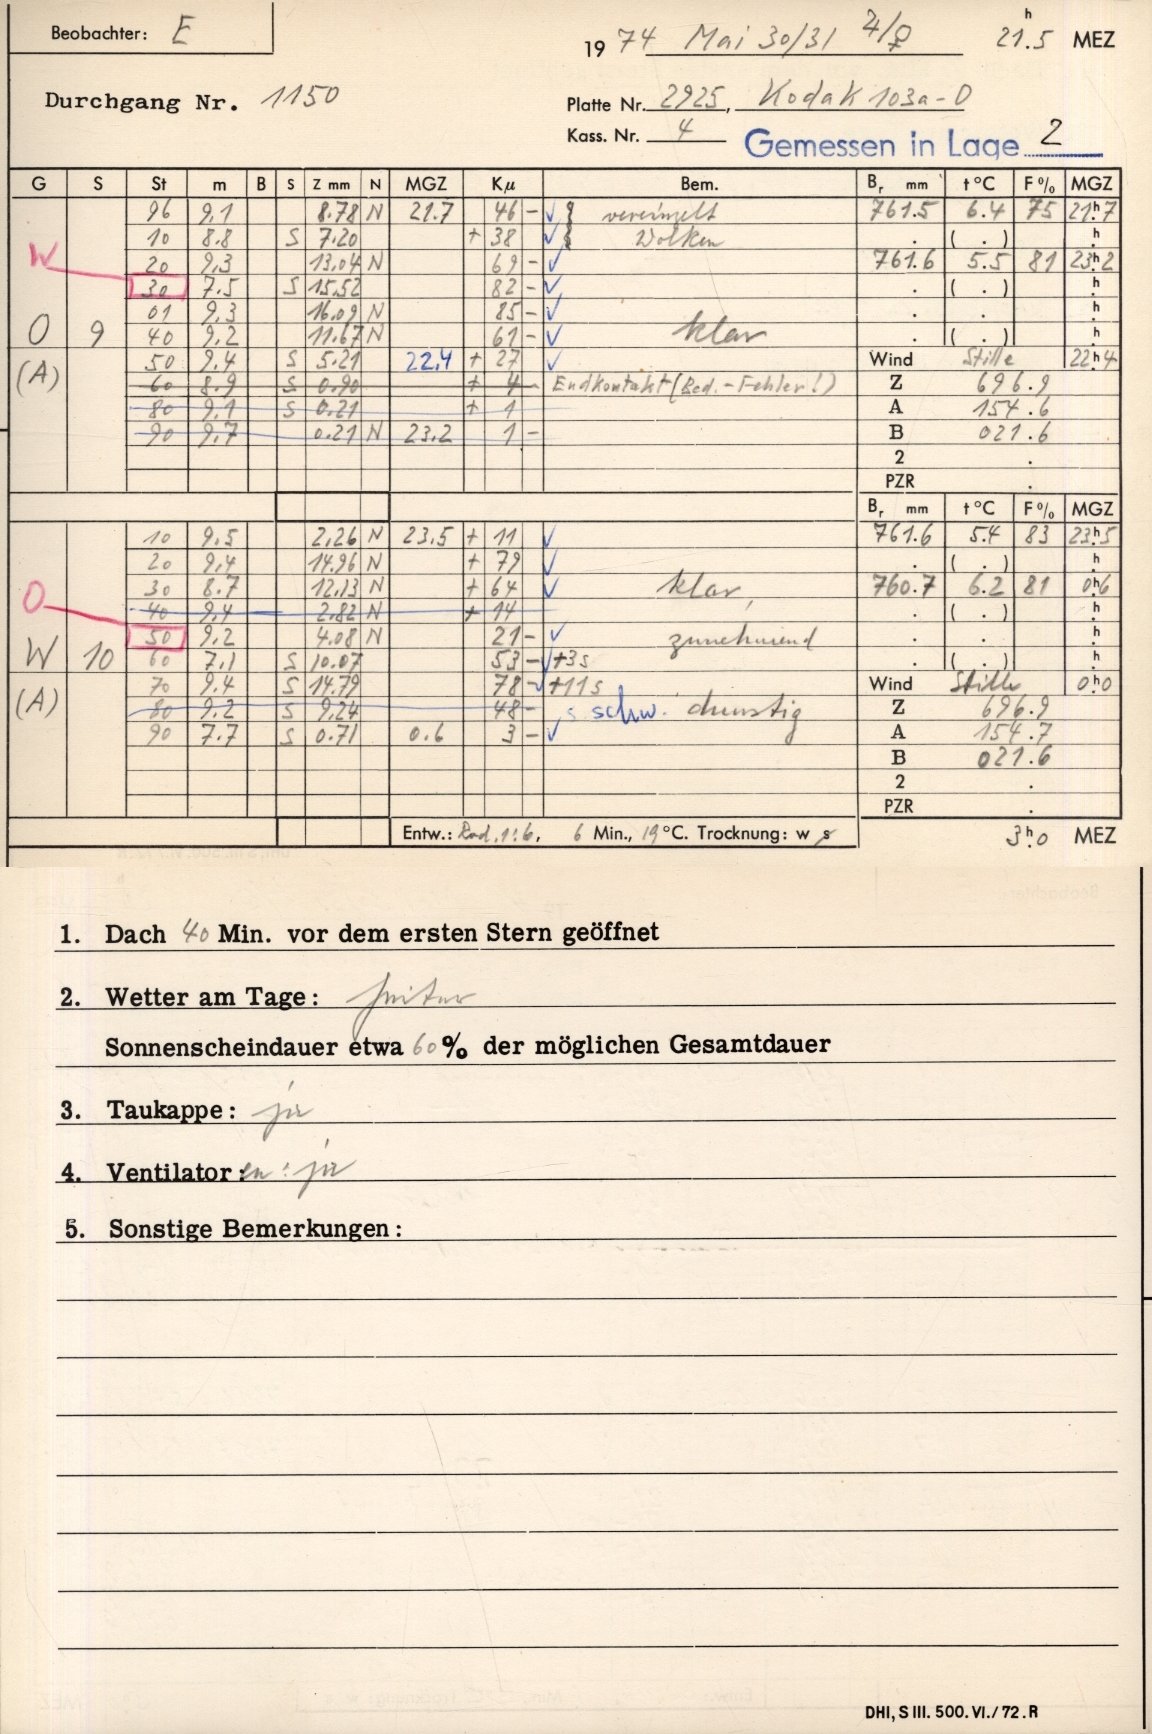 Beobachter: E
1974 Mai 30/31 ♃/♀ 21.5 h MEZ
Durchgang Nr. 1150
Platte Nr. 2925, Kodak 103a-O
Kass. Nr. 4 Gemessen in Lage 2
G S St m B S Z mm N MGZ Kμ Bem. Br mm t °C F % MGZ
96 9.1 8.78 N 21.7 46 - ✓ vereinzelt 761.5 6.4 75 21h7
10 8.8 S 7.20 + 38 ✓ Wolken . ( . ) h
W 20 9.3 13.04 N 69 - ✓ 761.6 5.5 81 23h2
30 7.5 S 15.52 82 - ✓ . ( . ) h
01 9.3 16.09 N 85 - ✓ . . h
O 9 40 9.2 11.67 N 61 - ✓ klar . ( . ) h
(A) 50 9.4 S 5.21 22.4 + 27 ✓ Wind Stille 22h4
60 8.9 S 0.90 + 4 Endkontakt (Bed.-Fehler!) Z 696.9
80 9.1 S 0.21 + 1 A 154.6
90 9.7 0.21 N 23.2 1 - B 021.6
2 .
PZR .
Br mm t °C F % MGZ
10 9.5 2.26 N 23.5 + 11 ✓ 761.6 5.4 83 23h5
20 9.4 14.96 N + 79 ✓ . ( . ) h
O 30 8.7 12.13 N + 64 ✓ klar, 760.7 6.2 81 0h6
40 9.4 2.82 N + 14 . ( . ) h
50 9.2 4.08 N 21 - ✓ zunehmend . . h
W 10 60 7.1 S 10.07 53 - ✓ +3s . ( . ) h
(A) 70 9.4 S 14.79 78 - ✓ +11s Wind Stille 0h0
80 9.2 S 9.24 48 - s. schw. dunstig Z 696.9
90 7.7 S 0.71 0.6 3 - ✓ A 154.7
B 021.6
2 .
PZR .
Entw.: Rod. 1:6, 6 Min., 19 °C. Trocknung: w s 3h0 MEZ
1. Dach 40 Min. vor dem ersten Stern geöffnet
2. Wetter am Tage: heiter
Sonnenscheindauer etwa 60 % der möglichen Gesamtdauer
3. Taukappe: ja
4. Ventilatoren: ja
5. Sonstige Bemerkungen:
DHI, S III. 500. VI./72. R